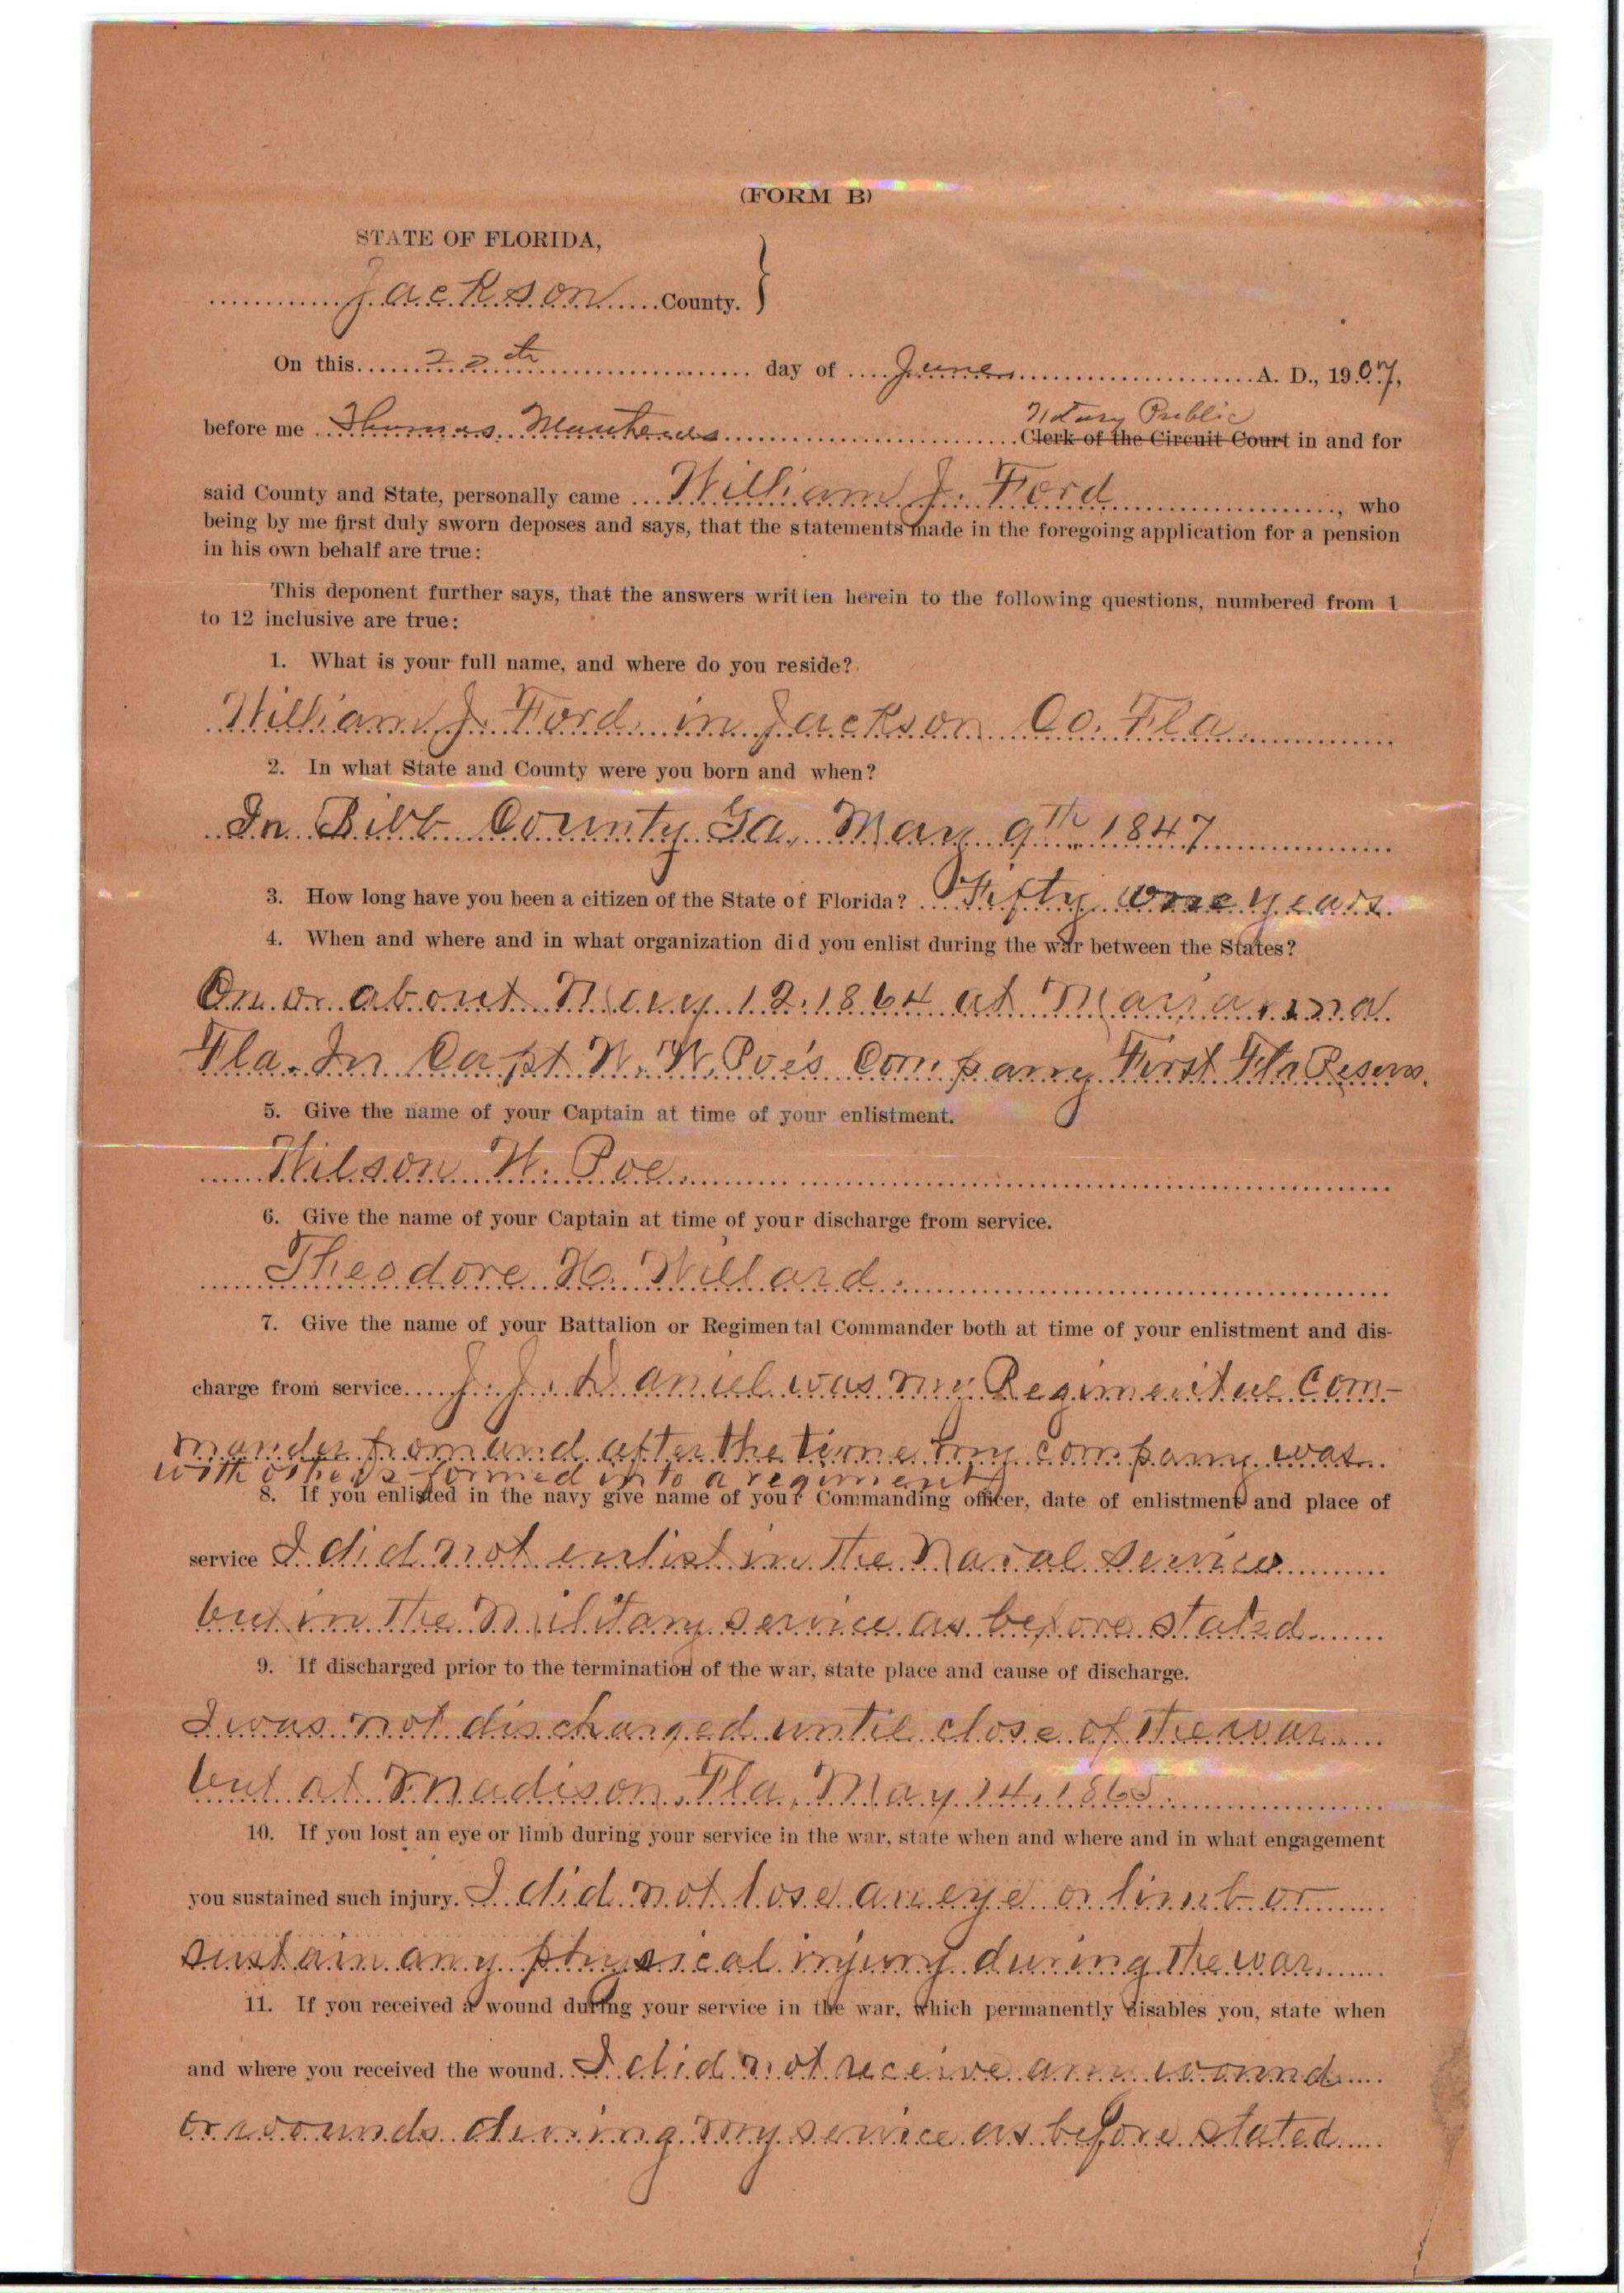 (FORM B)
STATE OF FLORIDA,
Jackson County.
On this 22th day of June A. D., 1907,
Notary Public
before me Thomas Clerk of the Circuit Court in and for
said County and State, personally came William J. Ford, who
being by me first duly sworn deposes and says, that the statements made in the foregoing application for a pension
in his own behalf are true:
This deponent further says, that the answers written herein to the following questions, numbered from 1
to 12 inclusive are true:
1. What is your full name, and where do you reside?
William J. Ford in Jackson Co. Fla
2. In what State and County were you born and when?
In Bibb County Ga, May 9th 1847
3. How long have you been a citizen of the State of Florida? Fifty one years.
4. When and where and in what organization did you enlist during the war between the States?
On or about May 12.1864 at Marianna
Fla. In Capt W. W. Poe's Company First Fla Reserv.
5. Give the name of your Captain at time of your enlistment.
Wilson W. Poe.
6. Give the name of your Captain at time of your discharge from service.
Theodore H. Willard.
7. Give the name of your Battalion or Regimental Commander both at time of your enlistment and dis-
charge from service. J. J. Daniel was my Regimental Com-
mander from and after the time my company was
with others formed into a regiment
8. If you enlisted in the navy give name of your Commanding officer, date of enlistment and place of
service I did not enlist in the Naval service
but in the Military service as before stated
9. If discharged prior to the termination of the war, state place and cause of discharge.
I was not discharged until close of the war
but at Madison, Fla, May 14, 1865.
10. If you lost an eye or limb during your service in the war, state when and where and in what engagement
you sustained such injury. I did not lose an eye or limb or
sustain any physical injury during the war
11. If you received a wound during your service in the war, which permanently disables you, state when
and where you received the wound. I did not receive any wound
or wounds during my service as before stated